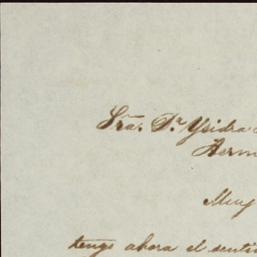 Sra. Da. Ysidra
Herm
Muy
tengo ahora el senti